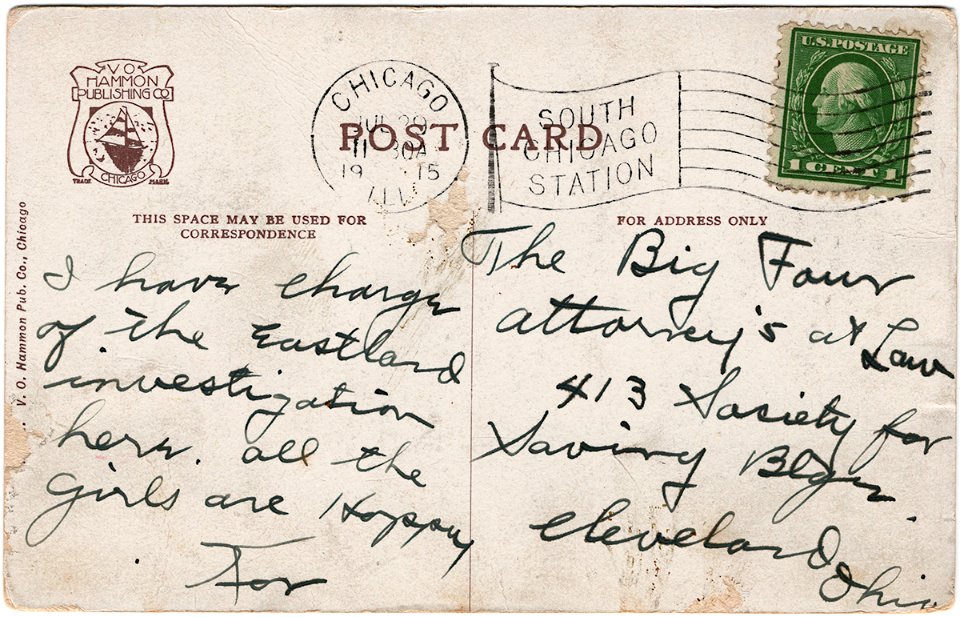 V O
HAMMON
PUBLISHING CO
TRADE CHICAGO MARK
CHICAGO
JUL 29
11 30A
19 15
ILL.
POST CARD
SOUTH
CHICAGO
STATION
U.S. POSTAGE
1 CENT 1
THIS SPACE MAY BE USED FOR
CORRESPONDENCE
FOR ADDRESS ONLY
V. O. Hammon Pub. Co., Chicago
I have charge
of the Eastland
investigation
here. all the
girls are Happy
The Big Four
attorney's at Law
413 Society for
Saving Bldg.
Cleveland
Ohio